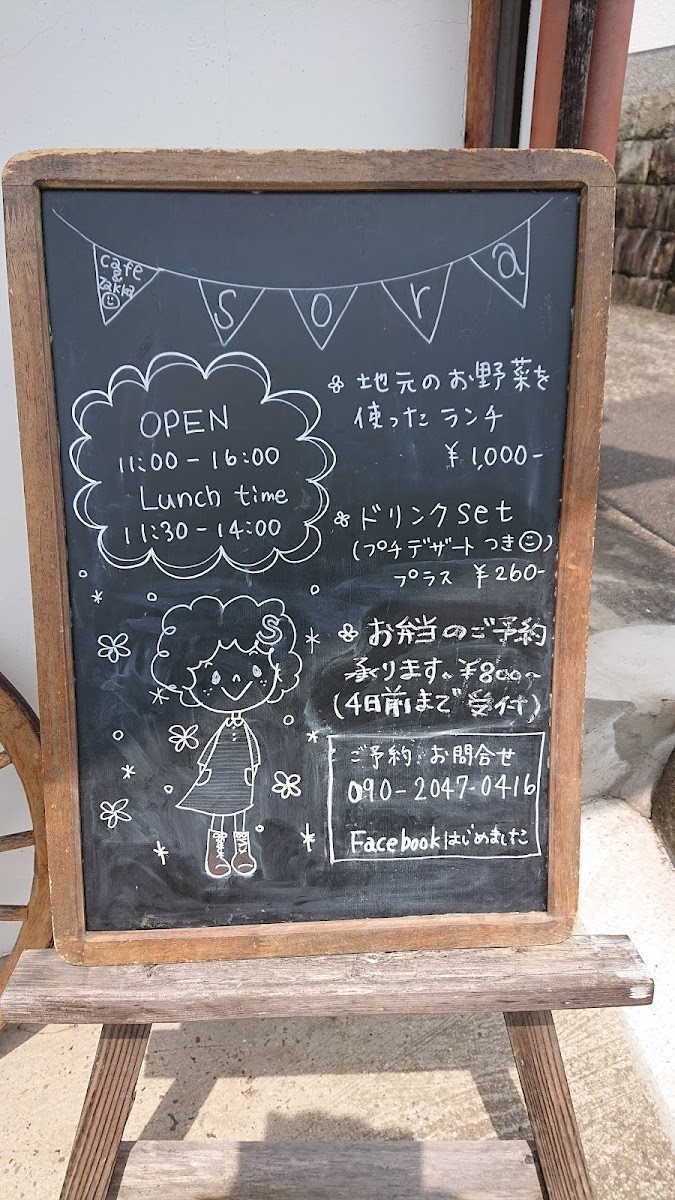 cafe
&
zakka
sora
OPEN
11:00-16:00
Lunch time
11:30-14:00
地元のお野菜を
使ったランチ
¥1,000-
ドリンクset
(プチデザートつき☺)
プラス ¥260-
お弁当のご予約
承ります。¥800~
(4日前まで受付)
ご予約.お問合せ
090-2047-0416
Facebookはじめました
S